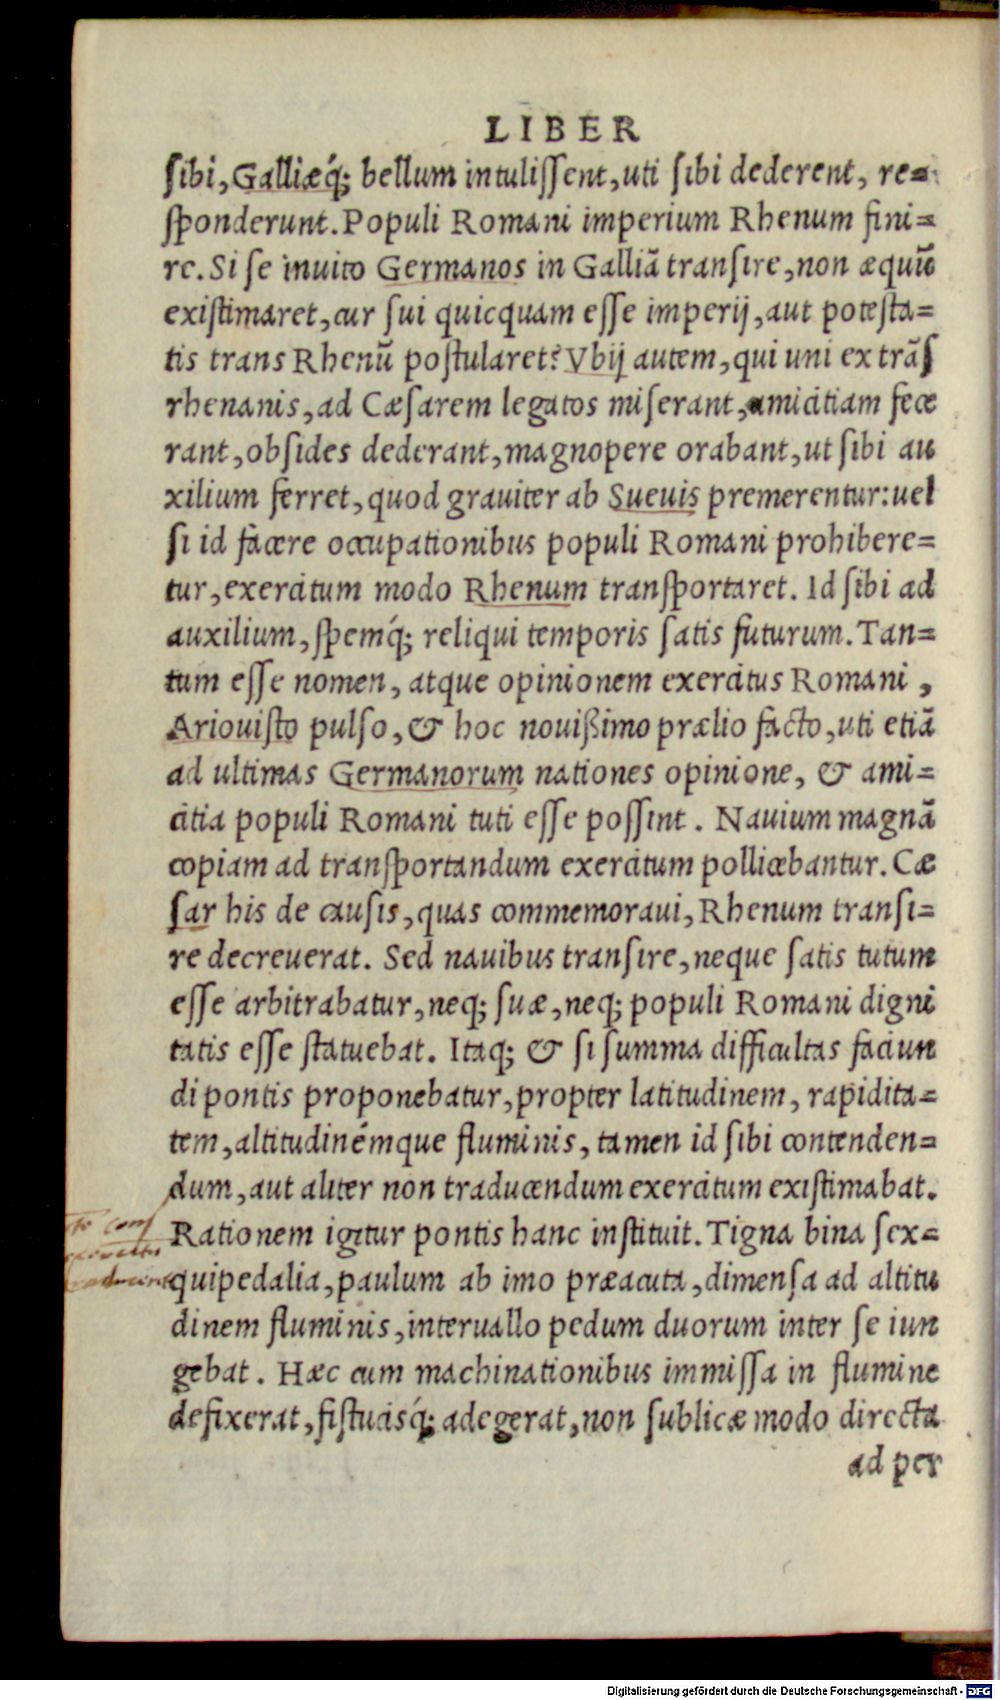 LIBER
sibi, Galliæq́; bellum intulissent, uti sibi dederent, re=
sponderunt. Populi Romani imperium Rhenum fini=
re. Si se inuito Germanos in Galliã transire, non æquũ
existimaret, cur sui quicquam esse imperij, aut potesta=
tis trans Rhenũ postularet? Vbij autem, qui uni ex trãs
rhenanis, ad Cæsarem legatos miserant, amicitiam fece
rant, obsides dederant, magnopere orabant, ut sibi au
xilium ferret, quod grauiter ab Sueuis premerentur: uel
si id facere occupationibus populi Romani prohibere=
tur, exercitum modo Rhenum transportaret. Id sibi ad
auxilium, spemq́; reliqui temporis satis futurum. Tan=
tum esse nomen, atque opinionem exercitus Romani,
Ariouisto pulso, & hoc nouißimo prælio facto, uti etiã
ad ultimas Germanorum nationes opinione, & ami=
citia populi Romani tuti esse possint. Nauium magnã
copiam ad transportandum exercitum pollicebantur. Cæ
sar his de causis, quas commemoraui, Rhenum transi=
re decreuerat. Sed nauibus transire, neque satis tutum
esse arbitrabatur, neq; suæ, neq; populi Romani digni
tatis esse statuebat. Itaq; & si summa difficultas faciun
di pontis proponebatur, propter latitudinem, rapidita=
tem, altitudinémque fluminis, tamen id sibi contenden=
dum, aut aliter non traducendum exercitum existimabat.
Rationem igitur pontis hanc instituit. Tigna bina sex=
quipedalia, paulum ab imo præacuta, dimensa ad altitu
dinem fluminis, interuallo pedum duorum inter se iun
gebat. Hæc cum machinationibus immissa in flumine
defixerat, fistucisq́; adegerat, non sublicæ modo directa
ad per
Digitalisierung gefördert durch die Deutsche Forschungsgemeinschaft - DFG